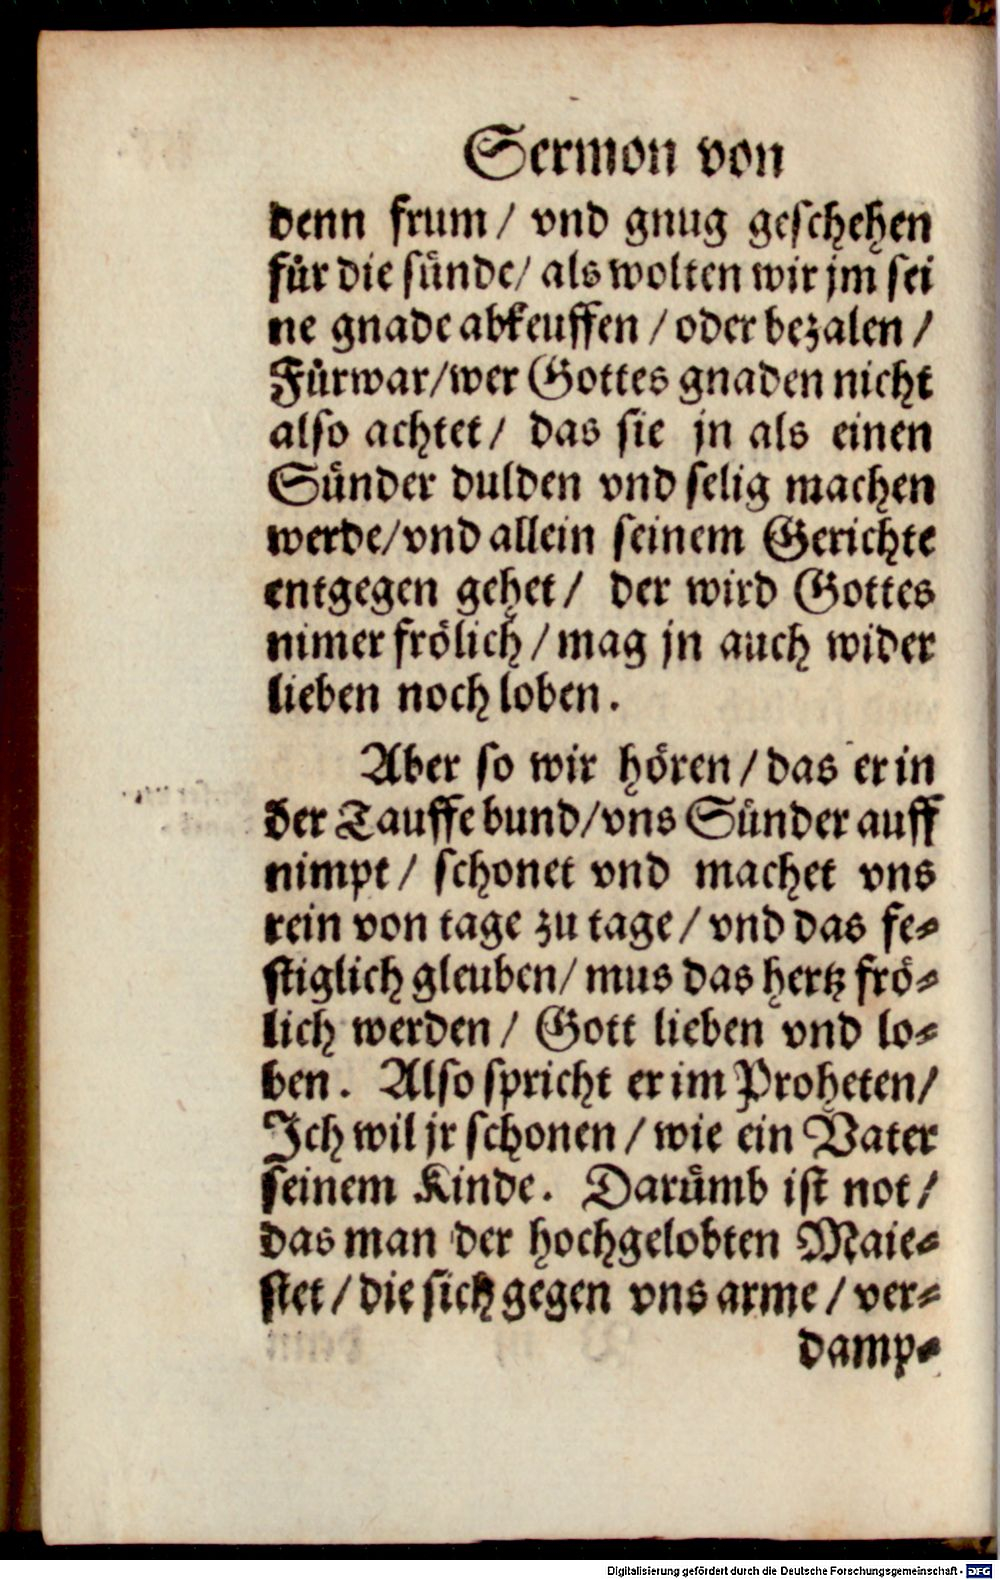 Sermon von
denn frum/ vnd gnug geschehen
für die sünde/ als wolten wir jm sei
ne gnade abkeuffen / oder bezalen /
Fürwar/wer Gottes gnaden nicht
also achtet/ das sie jn als einen
Sünder dulden vnd selig machen
werde/vnd allein seinem Gerichte
entgegen gehet/ der wird Gottes
nimer frölich / mag jn auch wider
lieben noch loben.
Aber so wir hören / das er in
der Tauffe bund/vns Sünder auff
nimpt/ schonet vnd machet vns
rein von tage zu tage / vnd das fe-
stiglich gleuben/ mus das hertz frö-
lich werden/ Gott lieben vnd lo-
ben. Also spricht er im Proheten/
Ich wil jr schonen / wie ein Vater
seinem Kinde. Darümb ist not /
das man der hochgelobten Maie-
stet / die sich gegen vns arme / ver-
damp-
Digitalisierung gefördert durch die Deutsche Forschungsgemeinschaft - DFG